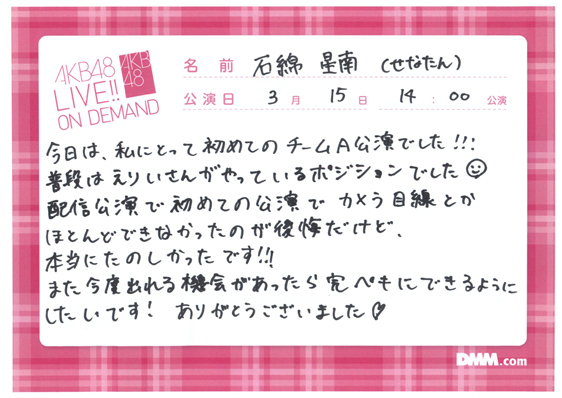 AKB48
LIVE!!
ON DEMAND
AKB
48
名前 石綿 星南 (せなたん)
公演日 3月 15日 14:00 公演
今日は、私にとって初めてのチームA公演でした!!!
普段はえりぃさんがやっているポジションでした
配信公演で初めての公演で カメラ目線とか
ほとんどできなかったのが後悔だけど、
本当にたのしかったです!!
また今度出れる機会があったら完ペキにできるように
したいです! ありがとうございました
DMM.com